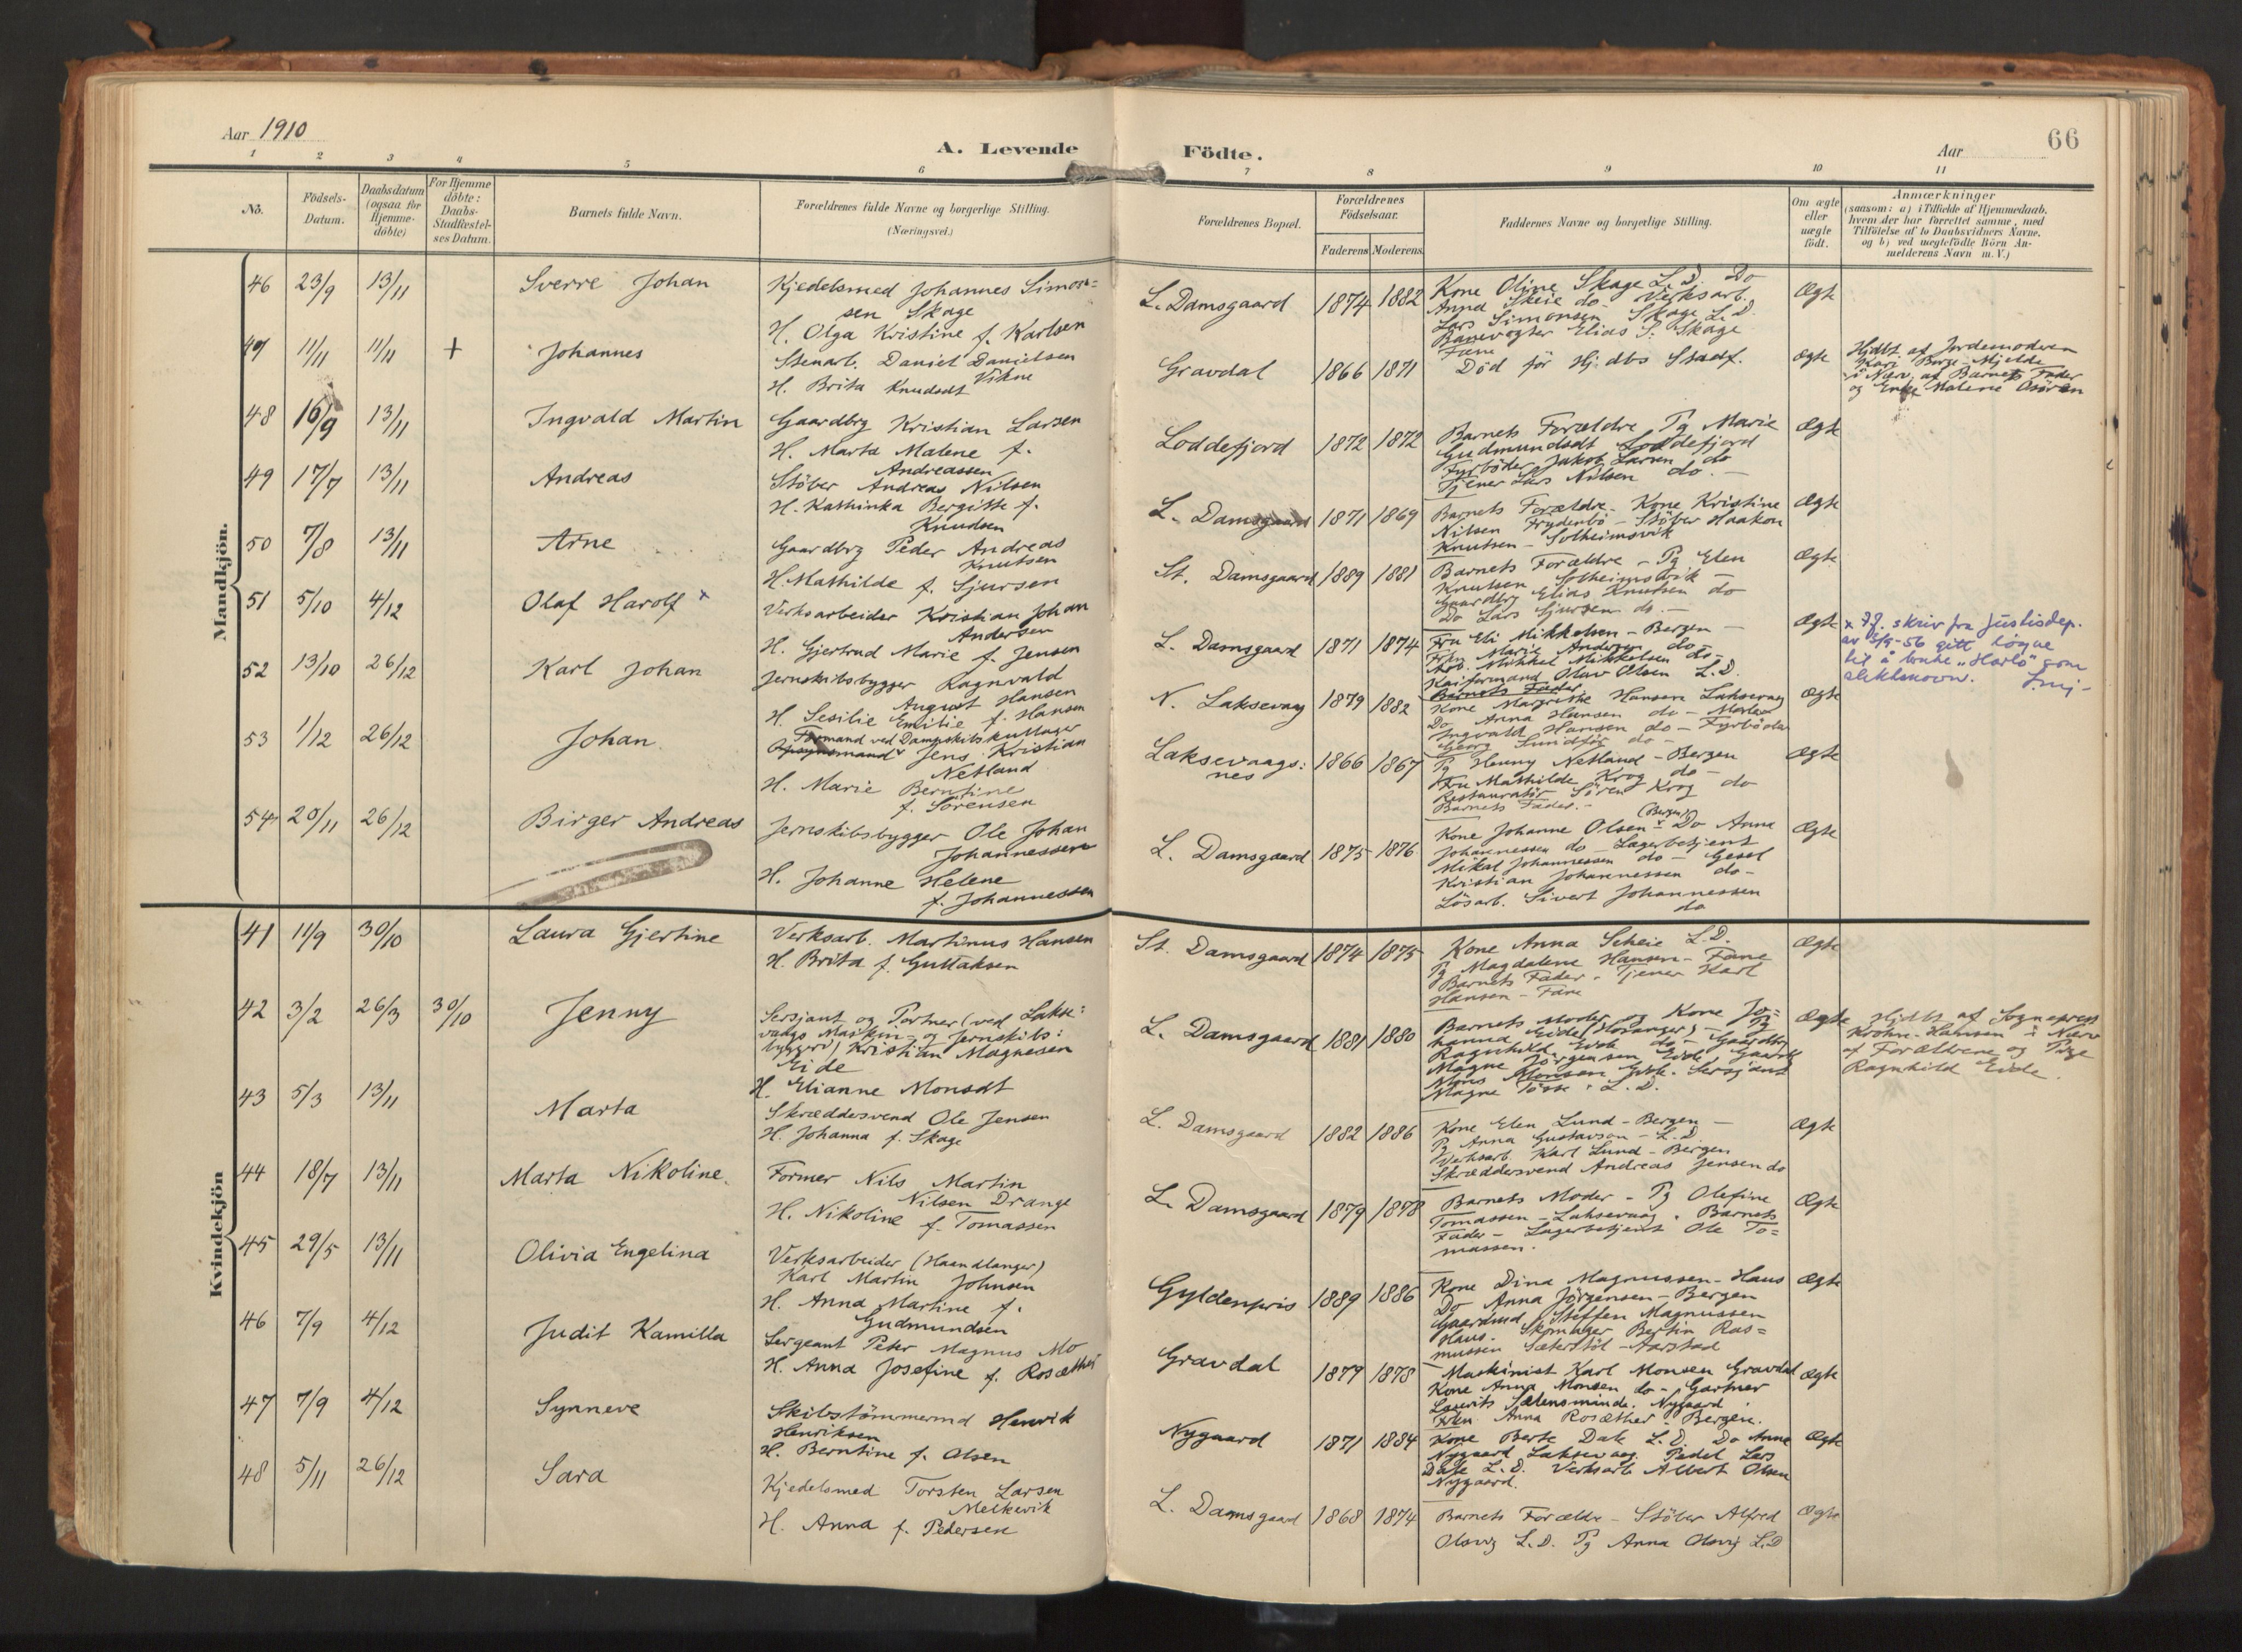 Aar 1910
A. Levende
Födte.
Aar
66
1 2 3 4 5 6 7 8 9 10 11
No.
Födsels-
Datum.
Daabsdatum
(ogsaa for
Hjemme-
döbte)
For Hjemme
döbte:
Daabs-
Stadfæstel-
ses Datum.
Barnets fulde Navn.
Forældrenes fulde Navne og borgerlige Stilling.
(Næringsvei.)
Forældrenes Bopæl.
Forældrenes
Födselsaar.
Faderens
Moderens
Faddernes Navne og borgerlige Stilling.
Om ægte
eller
uægte
födt.
Anmærkninger
(saasom: a) i Tilfælde af Hjemmedaab,
hvem der har forrettet samme, med
Tilföielse af to Daabsvidners Navne,
og b) ved uægtefödte Börn An-
melderens Navn m. V.)
Mandkjön.
46 23/9 13/11 Sverre Johan
Kjedelsmed Johannes Simon=
sen Skage
H. Olga Kristine f. Karlsen
L. Damsgaard 1874 1882
Kone Oline Skage L.D. Do
Anna Skeie do. Verksarb.
Lars Simonsen Skage L.D.
Banevogter Elias S. Skage
Fane
Ægte
47 11/11 11/11 + Johannes
Stenarb. Daniel Danielsen
Vikne
H. Brita Knudsdt
Gravdal 1866 1871
Död för Hj. dbs Stadf.
Ægte
Hjdbt. af Jordemoderen
Kari Borge-Mjelde
i Nærv. af Barnets Fader
og Enke Malene
48 16/9 13/11 Ingvald Martin
Gaardbrg Kristian Larsen
H. Marta Malene f.
Andreassen
Loddefjord 1872 1872
Barnets Forældre Pg Marie
Gudmundsdt Loddefjord
Fyrböder Jakob Larsen do
Tjener Lars Nilsen do. —
Ægte
49 17/7 13/11 Andreas
Stöber Andreas Nilsen
H. Kathinka Bergitte f.
Knudsen
L. Damsgaard 1871 1869
Barnets Forældre – Kone Kristine
Nilsen Frydenbö – Stöber Haakon
Knutsen – Solheimsvik
Ægte
50 7/8 13/11 Arne
Gaardbrg Peder Andreas
Knutsen
H. Mathilde f. Sjursen
St. Damsgaard 1889 1881
Barnets Forældre – Pg Elen
Knutsen Solheimsvik –
Gaardbrg Elias Knutsen do
Do Lars Sjursen do. —
Ægte
51 5/10 4/12 Olaf Harolf x
Verksarbeider Kristian Johan
Andersen
H. Gjertrud Marie f. Jensen
L. Damsgaard 1871 1874
Fru Eli Mikkelsen – Bergen —
Frkn Marie Andersen do
Arb. Mikkel Mikkelsen do –
Kaiformand Olav Olsen L.D.
Barnets Fader
Ægte
x Jf. skriv fra Justisdep.
av 5/9-56 gitt løyve
til å bruke "Harlo" som
slektsnavn.
52 13/10 26/12 Karl Johan
Jernskibsbygger Ragnvald
August Hansen
H. Sesilie Emilie f. Hansen
N. Laksevaag 1879 1882
Kone Margrethe Hansen Laksevaag
Do Anna Hansen do –
Ingvald Hansen do – Fyrböder
Georg do –
Ægte
53 1/12 26/12 Johan
Formand ved Dampskibskullager
Opsynsmand Jens Kristian
Netland
H. Marie Berntine
f. Sörensen
Laksevaags:
nes 1866 1867
Pg Henny Netland – Bergen
Fru Mathilde Krog do –
Restauratör Sören Krog do
Barnets Fader. –
Ægte
54 20/11 26/12 Birger Andreas
Jernskibsbygger Ole Johan
Johannessen
H. Johanne Helene
f. Johannessen
L. Damsgaard 1875 1876
(Bergen)
Kone Johanne Olsen v Do Anna
Johannessen do – Lagerbetjent
Mikal Johannessen do – Gesel
Kristian Johannessen do –
Lösarb. Sivert Johannessen
do
Ægte
Kvindekjön
41 11/9 30/10 Laura Gjertine
Verksarb. Martinus Hansen
H. Brita f. Guttaksen
St. Damsgaard 1874 1875
Kone Anna Scheie L.D.
Pg Magdalene Hansen – Fane
Barnets Fader. Tjener Karl
Hansen – Fane
Ægte
42 3/2 26/3 30/10 Jenny
Sersjant og Portner (ved Lakse:
vaags Maskin- og Jernskibs:
byggeri) Kristian Magnesen
Eide
H. Elianne Monsdt
L. Damsgaard 1881 1880
Barnets Moder og Kone Jo=
hanna Eide (Hosanger) – Pg
Ragnhild Eide do – Gaardbrg
Magne Jörgensen Eide Gaardb
Mons Monsen Eide. Sersjant
Magne Tösse. L.D.
Ægte
Hjdbt af Sogneprest
Krohn-Hansen i Nærv
af Forældrene og Pige
Ragnhild Eide.
43 5/3 13/11 Marta
Skræddersvend Ole Jensen
H. Johanna f. Skage
L. Damsgaard 1882 1886
Kone Elen Lund – Bergen –
Pg Anna Gustavson – L.D.
Verksarb Karl Lund – Bergen
Skræddersvend Andreas Jensen do
Ægte
44 18/7 13/11 Marta Nikoline.
Former Nils Martin
Nilsen Drange
H. Nikoline f. Tomassen
L. Damsgaard 1879 1878
Barnets Moder – Pg Olefine
Tomassen – Laksevaag. Barnets
Fader – Lagerbetjent Ole To=
massen.
Ægte
45 29/5 13/11 Olivia Engelina
Verksarbeider (Haandlanger)
Karl Martin Johnsen
H. Anna Martine f.
Gudmundsen
Gyldenpris 1889 1886
Kone Dina Magnussen – Haus
Do Anna Jörgensen – Bergen
Gaardmd Steffen Magnussen
Haus. Skomager Bertin Ras=
mussen Sæterstöl – Aarstad
Ægte
46 7/9 4/12 Judit Kamilla
Sergeant Peter Magnus Mo
H. Anna Josefine f. Rosæther
Gravdal 1879 1878
Maskinist Karl Monsen Gravdal
Kone Anna Monsen do – Gartner
Laurits Sælensminde. Nygaard.
Frkn Anna Rosæther – Bergen.
Ægte
47 7/9 4/12 Synneve
Skibstömmermd Henrik
Henriksen
H. Berntine f. Olsen
Nygaard 1871 1884
Kone Berte Dale L.D. Do Anna
Nygaard Laksevaag. Pedel Lars
Dale L.D. Verksarb Albert Olsen
Nygaard.
Ægte
48 5/11 26/12 Sara
Kjedelsmed Torsten Larsen
Melkevik
H. Anna f. Pedersen
L. Damsgaard 1868 1874
Barnets Forældre – Stöber Alfred
Olsvig L.D. Pg Anna Olsvig L.D
Ægte